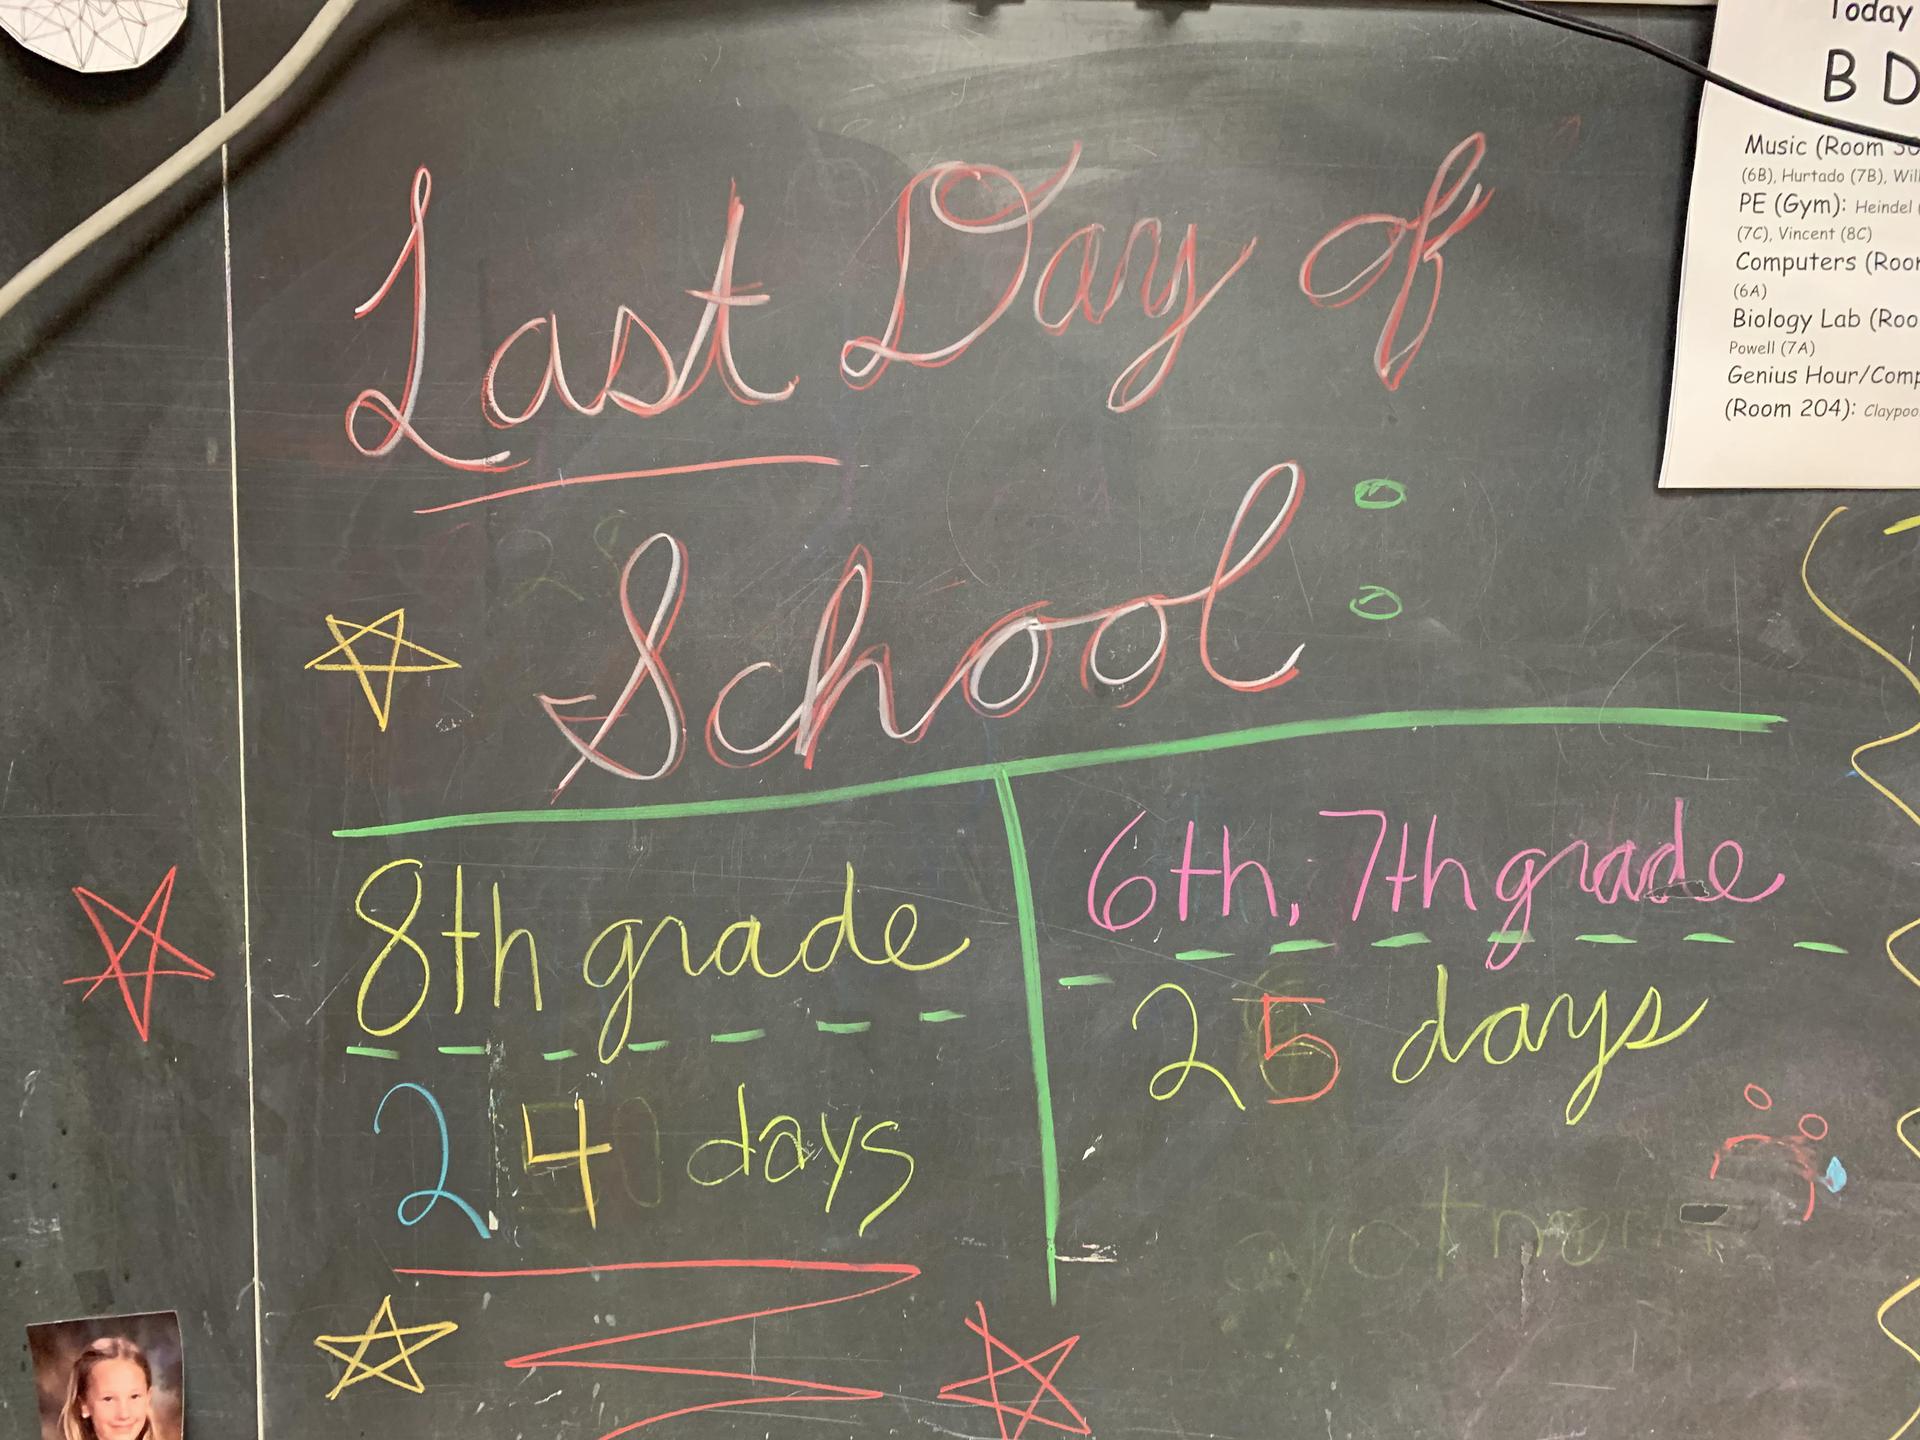 Last Day of
School:
8th grade
24 days
6th, 7th grade
25 days
Today
B D
Music (Room
(6B), Hurtado (7B), Will
PE (Gym): Heindel
(7C), Vincent (8C)
Computers (Roo
(6A)
Biology Lab (Roo
Powell (7A)
Genius Hour/Comp
(Room 204): Claypoo